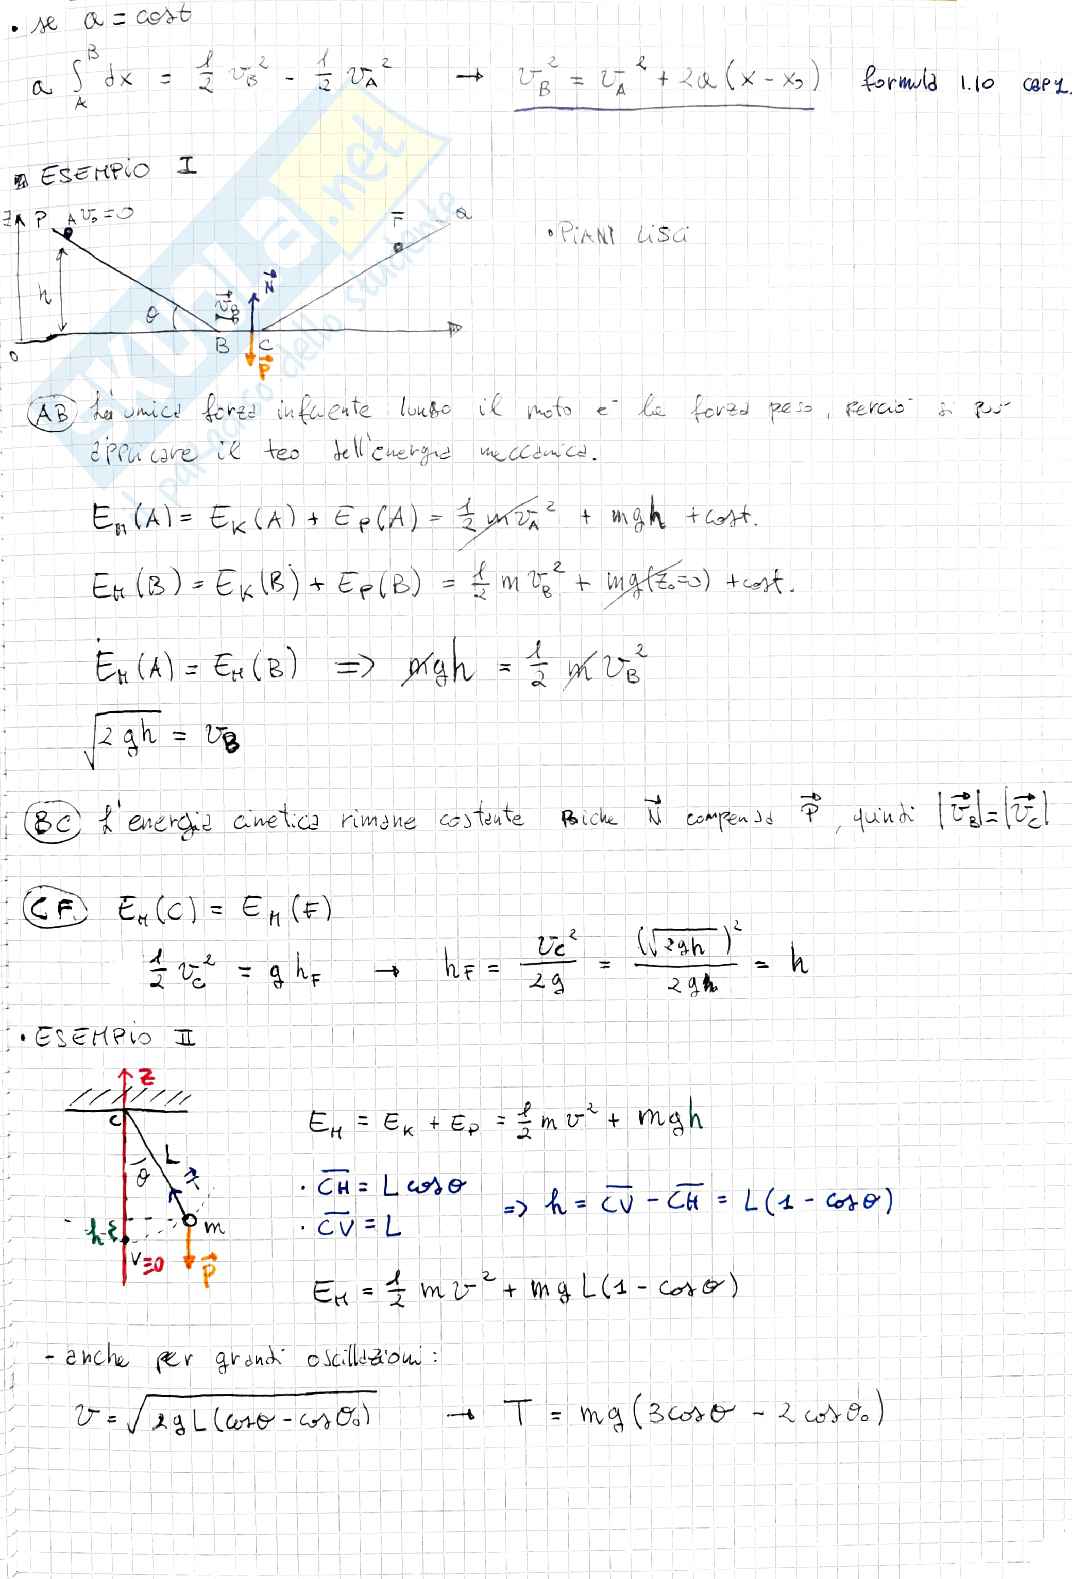 • se a = cost
a ∫_A^B dx = 1/2 v_B² - 1/2 v_A² → v_B² = v_A² + 2a(x - x₀) formula 1.10 cap 1.
ESEMPIO I
z P A v₀=0 F Q
• PIANI LISCI
h θ N
O B C P
SKUOLA.net
il paradiso dello studente
(AB) L'unica forza influente lungo il moto è la forza peso, perciò si può
applicare il teo dell'energia meccanica.
E_M(A) = E_K(A) + E_P(A) = 1/2 m v_A² + mgh + cost.
E_M(B) = E_K(B) + E_P(B) = 1/2 m v_B² + mg(z₀=0) + cost.
E_M(A) = E_M(B) => mgh = 1/2 m v_B²
√2gh = v_B
(BC) L'energia cinetica rimane costante poiche N compensa P, quindi |v_B| = |v_C|
(CF) E_M(C) = E_M(F)
1/2 v_C² = g h_F → h_F = v_C²/2g = (√2gh)²/2g = h
• ESEMPIO II
z
C
E_M = E_K + E_P = 1/2 m v² + mgh
θ L
• CH = L cosθ
• CV = L
=> h = CV - CH = L(1 - cosθ)
h m
V=0 P
E_M = 1/2 m v² + mg L(1 - cosθ)
- anche per grandi oscillazioni:
v = √2gL(cosθ - cosθ₀) → T = mg(3cosθ - 2cosθ₀)